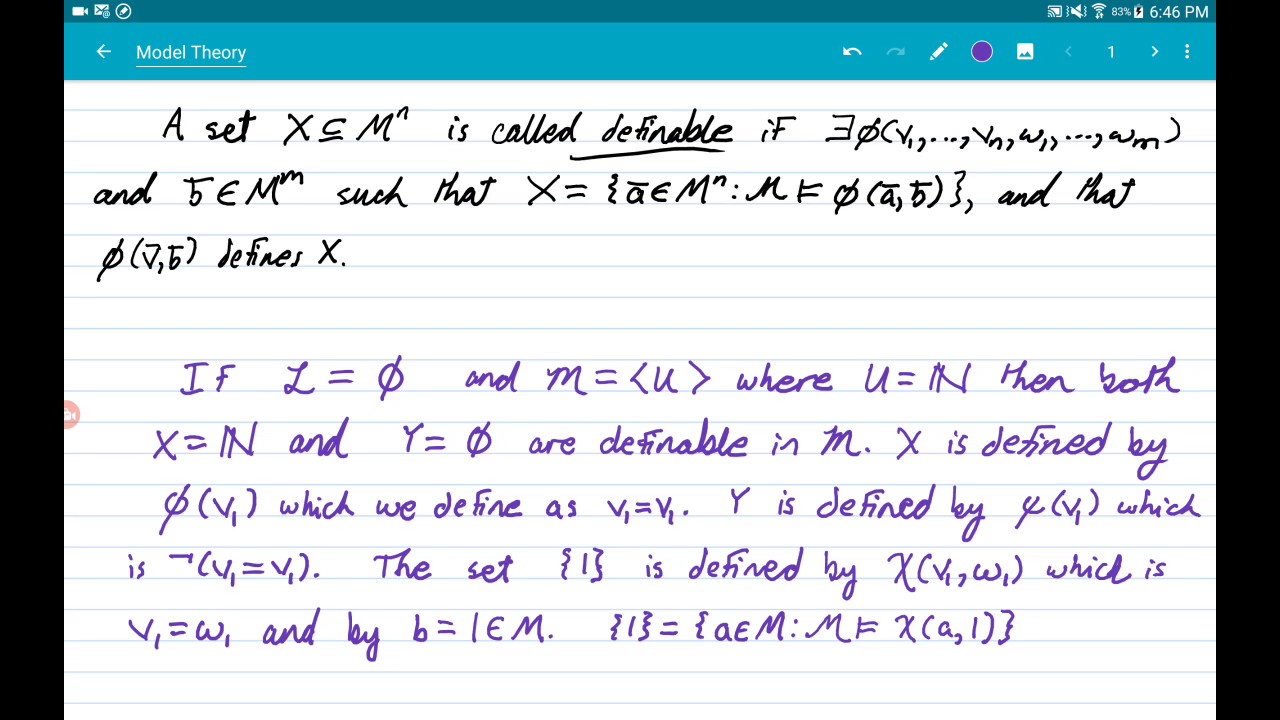 83% 6:46 PM
Model Theory
1
A set X ⊆ Mⁿ is called definable if ∃φ(v₁,...,vₙ,w₁,...,wₘ)
and b̄ ∈ Mᵐ such that X = {ā ∈ Mⁿ : ℳ ⊨ φ(ā,b̄)}, and that
φ(v̄,b̄) defines X.
If ℒ = ∅ and ℳ = ⟨U⟩ where U = ℕ then both
X = ℕ and Y = ∅ are definable in ℳ. X is defined by
φ(v₁) which we define as v₁=v₁. Y is defined by ψ(v₁) which
is ¬(v₁=v₁). The set {1} is defined by χ(v₁,w₁) which is
v₁=w₁ and by b = 1 ∈ M. {1} = {a∈M : ℳ ⊨ χ(a,1)}